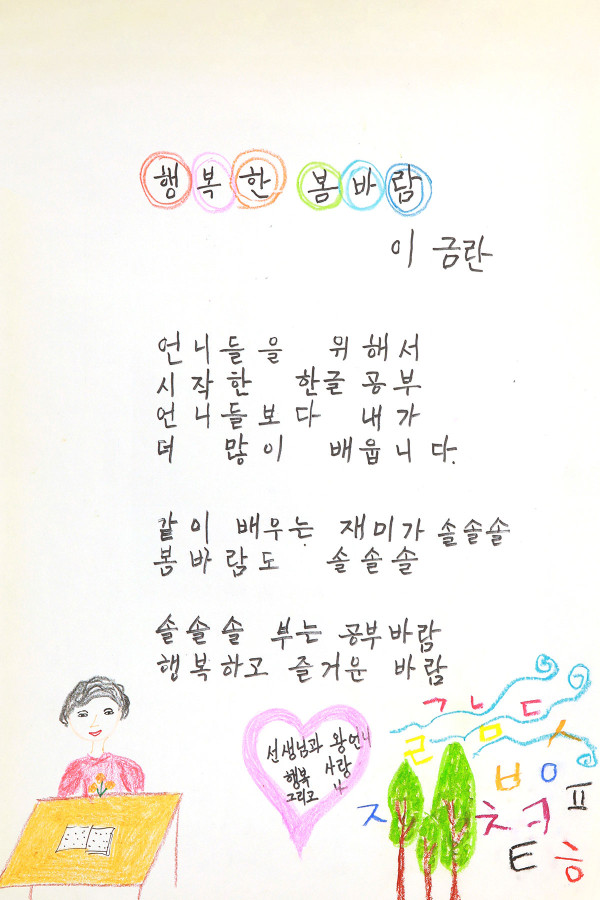 행복한 봄바람
이 금란
언니들을 위해서
시작한 한글공부
언니들보다 내가
더 많이 배웁니다.
같이 배우는 재미가 솔솔솔
봄바람도 솔솔솔
솔솔솔 부는 공부바람
행복하고 즐거운 바람
선생님과 왕언니
행복 사랑
그리고 나
ㄱ ㄴ ㄷ
ㄹ ㅁ ㅅ
ㅂ ㅇ ㅍ
ㅈ ㅊ ㅋ
ㅌ ㅎ